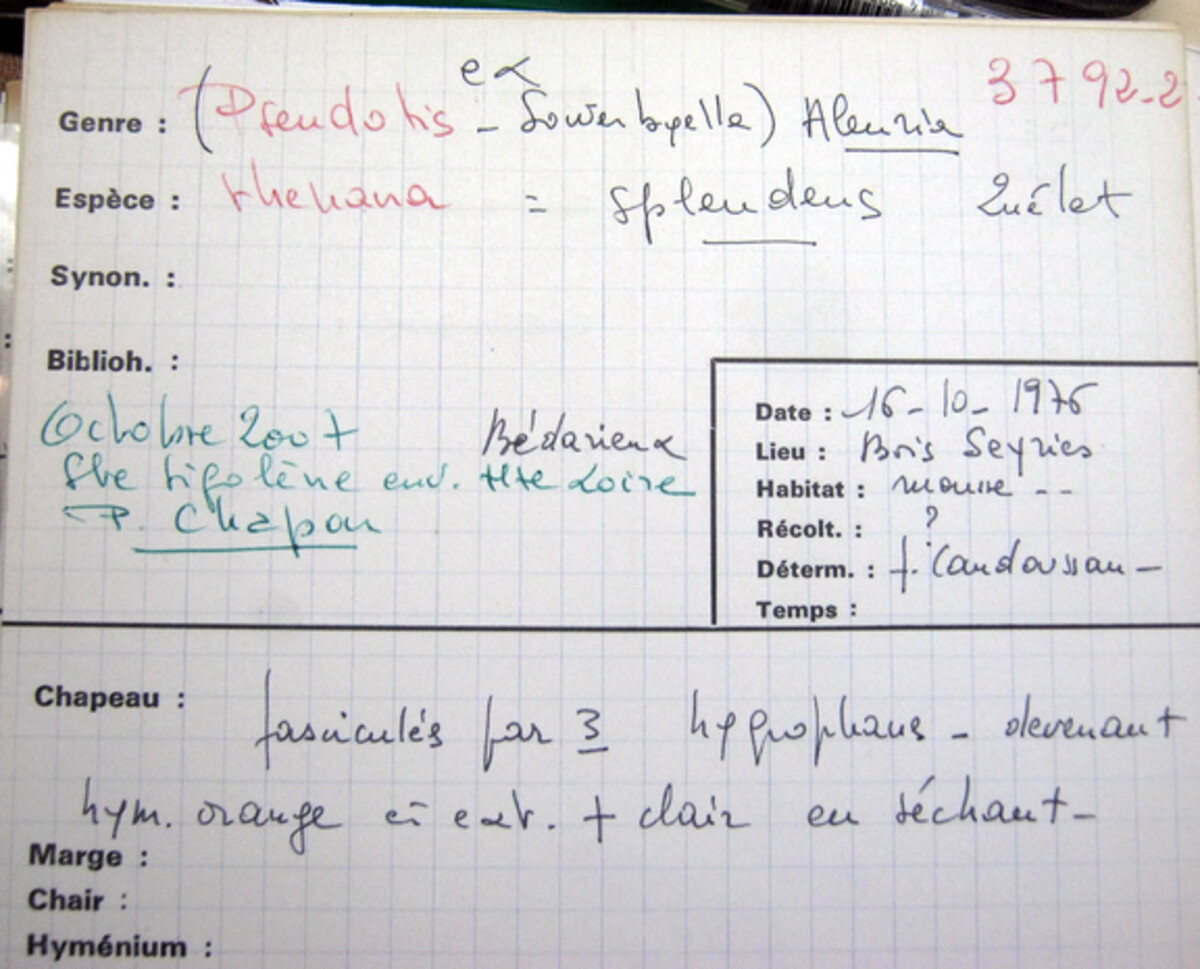 ex 3792-2
Genre : (Pseudotis - Sowerbyella) Aleuria
Espèce : rhenana = splendens Quélet
Synon. :
Biblioh. :
Octobre 2007 Bédarieux
Ste Sigolène env. Hte Loire
P. Chapon
Date : 16-10-1976
Lieu : Bois Seyries
Habitat : mousse --
Récolt. : ?
Déterm. : f. Candoussau -
Temps :
Chapeau :
fasciculés par 3 hygrophans - devenant
hym. orange ext. + clair en séchant -
Marge :
Chair :
Hyménium :